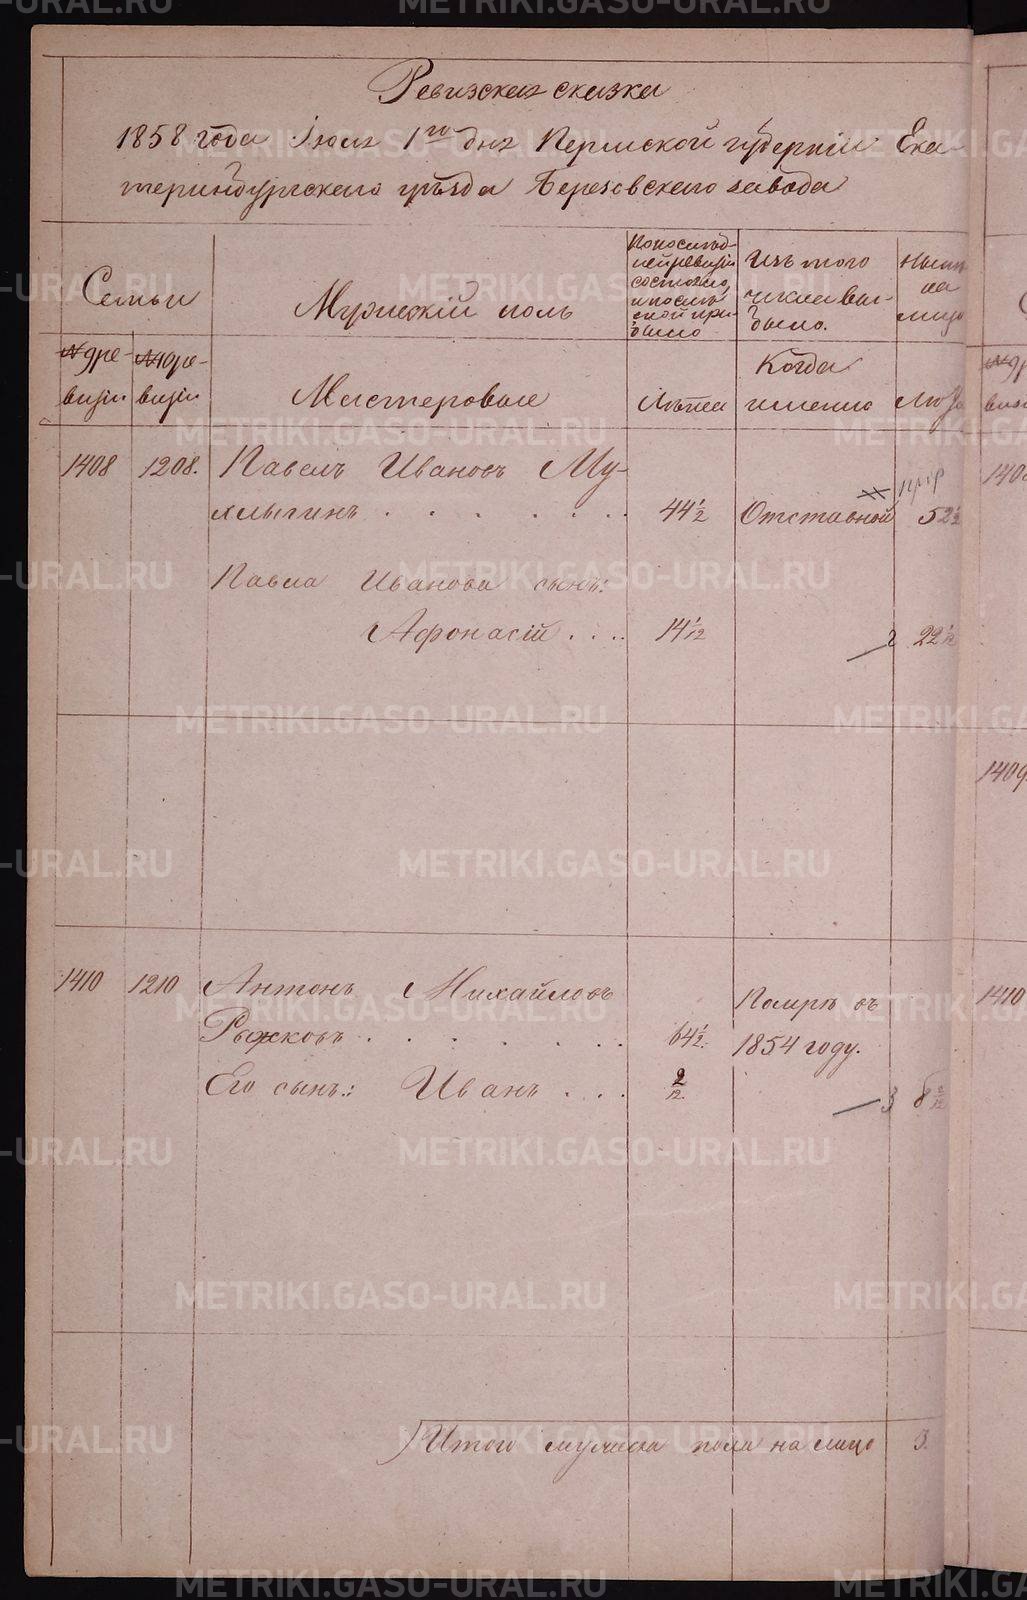 Ревизская сказка
1858 года Iюля 1го дня Пермской губернiи Ека-
теринбургскаго уѣзда Березовскаго завода
Семьи
Мужескiй полъ
По послѣд-
ней ревизiи
состояло,
и послѣ
оной при-
было
Изъ того
числа вы-
было.
Ныне
на
лицо
№ 9 ре-
визiи
№ 10 ре-
визiи
Мастеровые
Лѣта
Когда
именно
Лѣта
1408 1208. Павелъ Ивановъ Му-
хлыгинъ . . . . . . . 44 1/2 Отставной 52 1/2
Павла Иванова сынъ:
Афонасiй . . . . 14 1/12 2 22 1/12
1410 1210 Антонъ Михайловъ
Рыжковъ . . . . . . . 64 1/2. Помре въ
1854 году.
Его сынъ: Иванъ . . . 2/12. 3 8 2/12
Итого мужеска пола на лицо 3.
1408
1409.
1410
METRIKI.GASO-URAL.RU